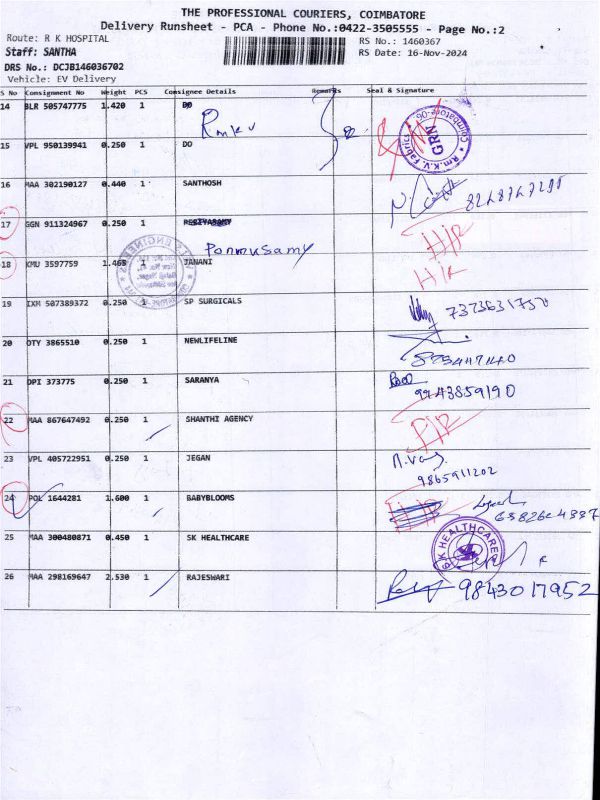 THE PROFESSIONAL COURIERS, COIMBATORE
Delivery Runsheet - PCA - Phone No.:0422-3505555 - Page No.:2
Route: R K HOSPITAL RS No.: 1460367
Staff: SANTHA RS Date: 16-Nov-2024
DRS No.: DCJB146036702
Vehicle: EV Delivery
S No Consignment No Weight PCS Consignee Details Remarks Seal & Signature
14 BLR 505747775 1.420 1 DO
Rmkv
Rm.K.V. Fabrics Coimbatore-06 GRN
15 VPL 950139941 0.250 1 DO
16 MAA 302190127 0.440 1 SANTHOSH
17 GGN 911324967 0.250 1 PERIYASAMY H/R
Ponnusamy
18 KMU 3597759 1.465 1 JANANI H/R
19 IXM 507389372 0.250 1 SP SURGICALS 7373631750
20 OTY 3865510 0.250 1 NEWLIFELINE
21 OPI 373775 0.250 1 SARANYA 9943859190
22 MAA 867647492 0.250 1 SHANTHI AGENCY
23 VPL 405722951 0.250 1 JEGAN
9865911202
24 POL 1644281 1.600 1 BABYBLOOMS
25 MAA 300480871 0.450 1 SK HEALTHCARE
SK HEALTHCARE
26 MAA 298169647 2.530 1 RAJESWARI 9843017952